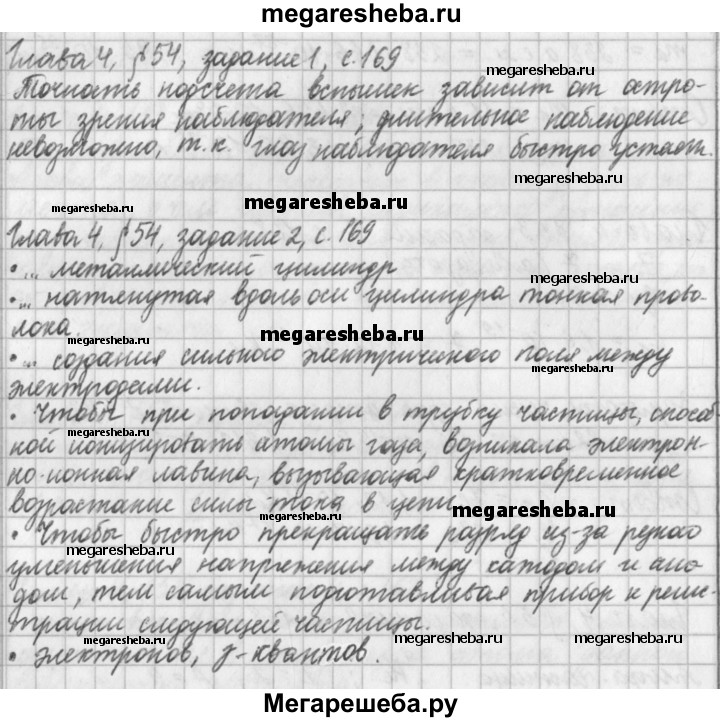 megaresheba.ru
Глава 4, §54, задание 1, с. 169
megaresheba.ru
Точность подсчета вспышек зависит от остро-
ты зрения наблюдателя; длительное наблюдение
невозможно, т.к. глаз наблюдателя быстро устает.
megaresheba.ru
megaresheba.ru
megaresheba.ru
Глава 4, §54, задание 2, с. 169
• ... металлический цилиндр
megaresheba.ru
• ... натянутая вдоль оси цилиндра тонкая прово-
лока.
megaresheba.ru
megaresheba.ru
• ... создания сильного электрического поля между
электродами.
• Чтобы при попадании в трубку частицы, способ-
megaresheba.ru
ной ионизировать атомы газа, возникала электрон-
но-ионная лавина, вызывающая кратковременное
возрастание силы тока в цепи
megaresheba.ru
megaresheba.ru
• Чтобы быстро прекращать разряд из-за резкого
megaresheba.ru
уменьшения напряжения между катодом и ано-
дом, тем самым подготавливая прибор к регис-
megaresheba.ru
трации следующей частицы.
megaresheba.ru
megaresheba.ru
megaresheba.ru
• электронов, γ-квантов.
Мегарешеба.ру